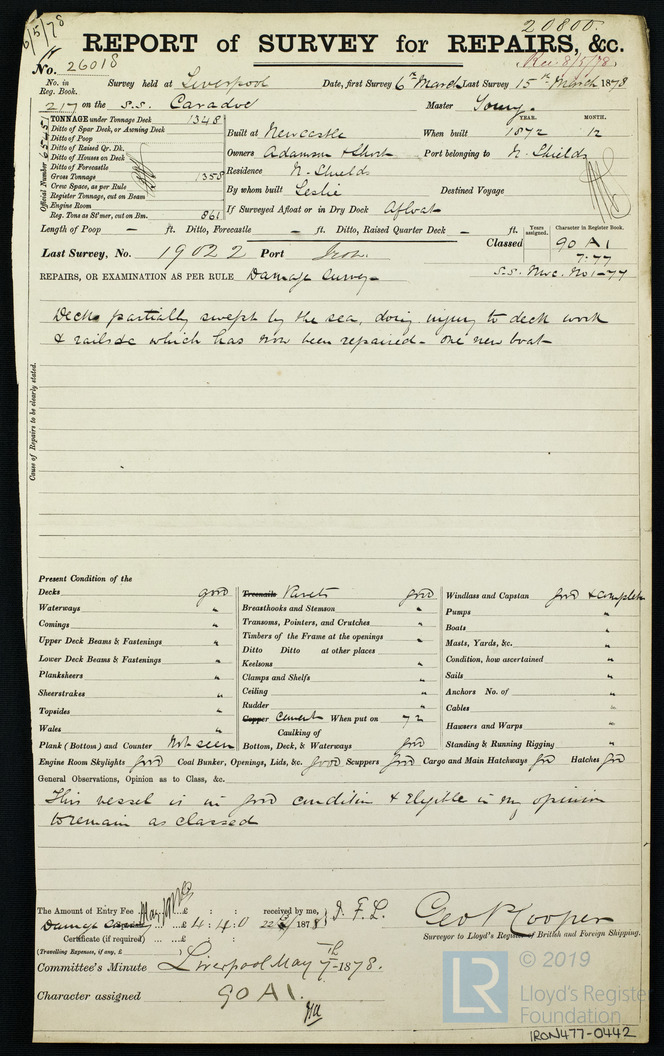 6/5/78
20800.
REPORT of SURVEY for REPAIRS, &c.
No. 26018
Rec. 8/5/78.
No. in Reg. Book.
Survey held at Liverpool Date, first Survey 6th March Last Survey 15th March 1878
217 on the S.S. Caradoc Master Young.
TONNAGE under Tonnage Deck 1348
Ditto of Spar Deck, or Awning Deck
Ditto of Poop
Ditto of Raised Qr. Dk.
Ditto of Houses on Deck
Ditto of Forecastle
Gross Tonnage 1358
Crew Space, as per Rule
Register Tonnage, cut on Beam
Engine Room
Reg. Tons as St'mer, cut on Bm. 861
Official Number
YEAR. MONTH.
Built at Newcastle When built 1872 12
Owners Adamson & Short Port belonging to N. Shields
Residence N. Shields
By whom built Leslie Destined Voyage
If Surveyed Afloat or in Dry Dock Afloat
Length of Poop — ft. Ditto, Forecastle — ft. Ditto, Raised Quarter Deck — ft.
Years assigned.
Character in Register Book.
Classed 90 A1
7.77
Last Survey, No. 19022 Port Iron.
S.S. Nwc. No 1-77
REPAIRS, OR EXAMINATION AS PER RULE Damage Survey
Deck partially swept by the sea, doing injury to deck work
& rails &c which has now been repaired - one new boat
Cause of Repairs to be clearly stated.
Present Condition of the
Decks good
Waterways "
Comings "
Upper Deck Beams & Fastenings "
Lower Deck Beams & Fastenings "
Planksheers "
Sheerstrakes "
Topsides "
Wales "
Plank (Bottom) and Counter Not seen
Treenails Rivets good
Breasthooks and Stemson "
Transoms, Pointers, and Crutches "
Timbers of the Frame at the openings "
Ditto Ditto at other places "
Keelsons "
Clamps and Shelfs "
Ceiling "
Rudder "
Copper Cement When put on 72
Caulking of
Bottom, Deck, & Waterways good
Windlass and Capstan good & complete
Pumps "
Boats "
Masts, Yards, &c. "
Condition, how ascertained "
Sails "
Anchors No. of "
Cables "
Hawsers and Warps "
Standing & Running Rigging "
Engine Room Skylights good Coal Bunker, Openings, Lids, &c. good Scuppers good Cargo and Main Hatchways good Hatches good
General Observations, Opinion as to Class, &c.
This vessel is in good condition & Eligible in my opinion
to remain as classed
The Amount of Entry Fee ... £ : : received by me,
Damage £ 4 : 4 : 0 1878 J. F. L.
Certificate (if required) ... £ : :
(Travelling Expenses, if any, £ )
Geo R Cooper
Surveyor to Lloyd's Register of British and Foreign Shipping.
Committee's Minute Liverpool May 7th 1878.
Character assigned 90 A1.
LR
© 2019
Lloyd's Register
Foundation
IRON477-0442